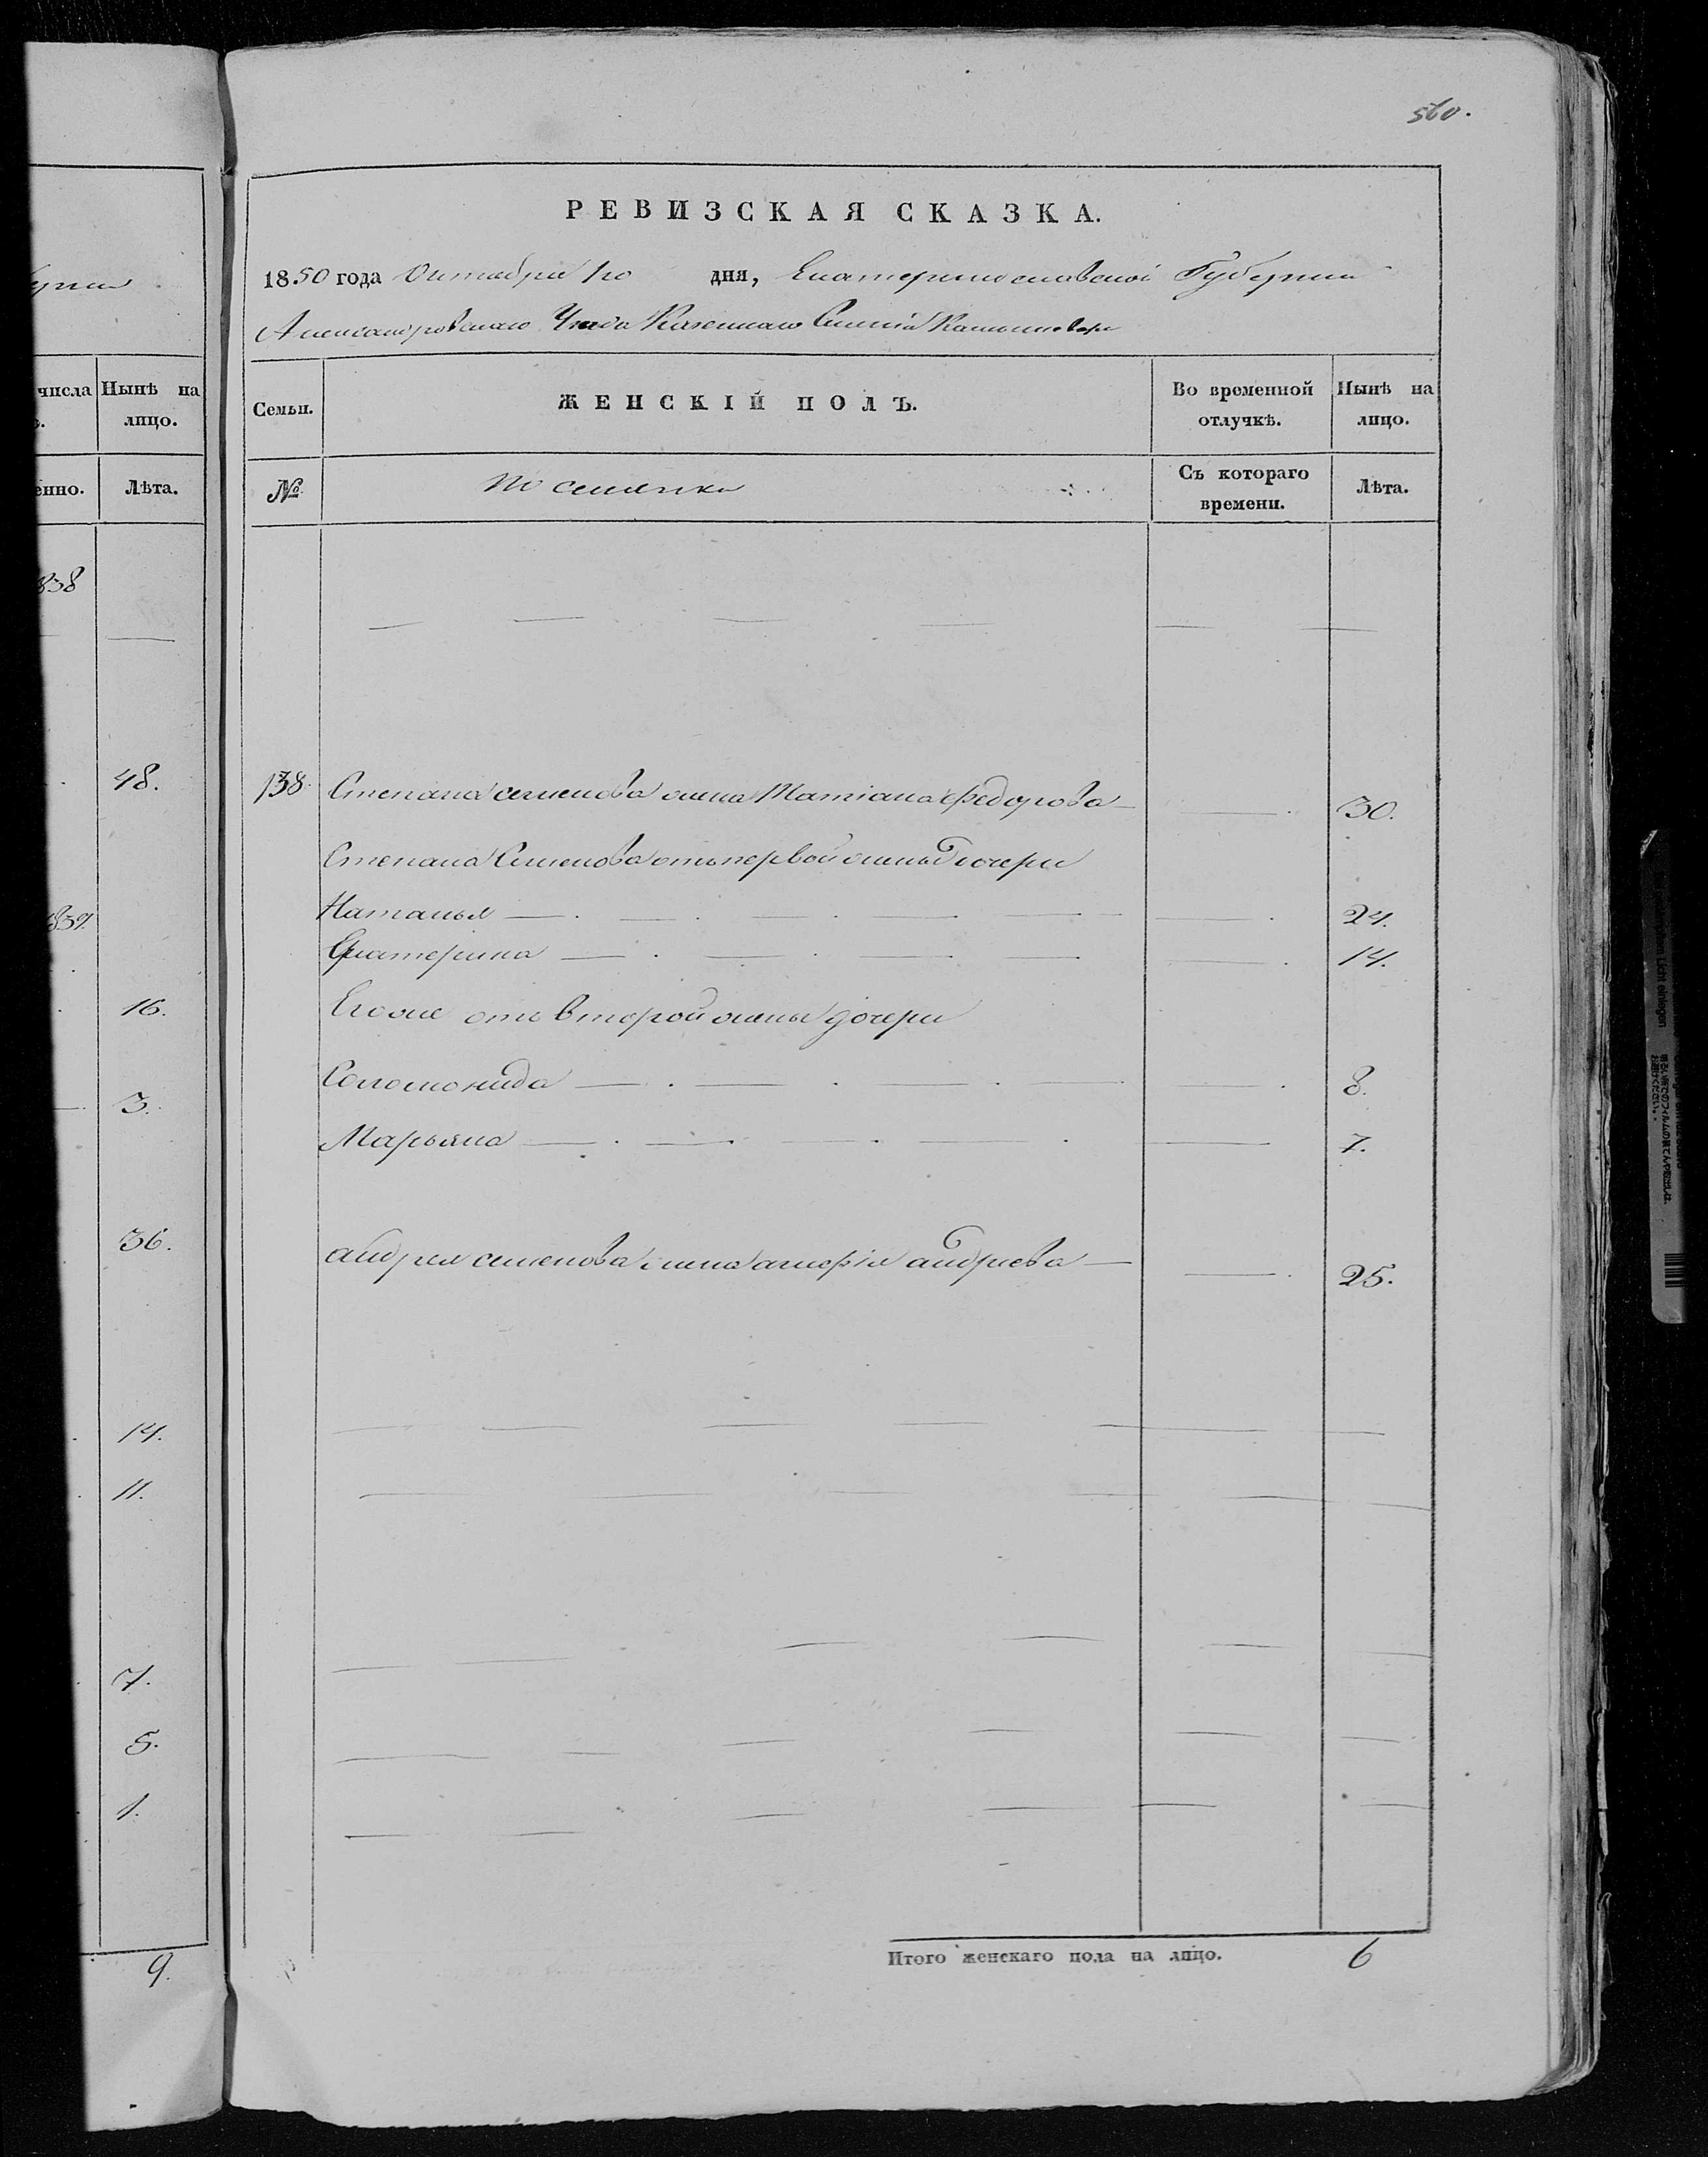 560.
РЕВИЗСКАЯ СКАЗКА.
1850 года Октября 10 дня, Екатеринославской Губернии
Александровского Уезда Казенного Селенія
числа
Нынѣ на лицо.
Семьи.
ЖЕНСКІЙ ПОЛЪ.
Во временной отлучкѣ.
Нынѣ на лицо.
енно.
Лѣта.
№
Поселянки
Съ котораго времени.
Лѣта.
838
48.
138. Степана Семенова жена Татіана Федорова 30.
Степана Семенова отъ первой жены дочери
839.
Наталья 24.
Екатерина 14.
16.
Его же отъ второй жены дочери
Соломонида 8.
3.
Марьяна 7.
36.
Андрея Семенова жена андреева 25.
14.
11.
7.
5.
1.
9.
Итого женскаго пола на лицо. 6